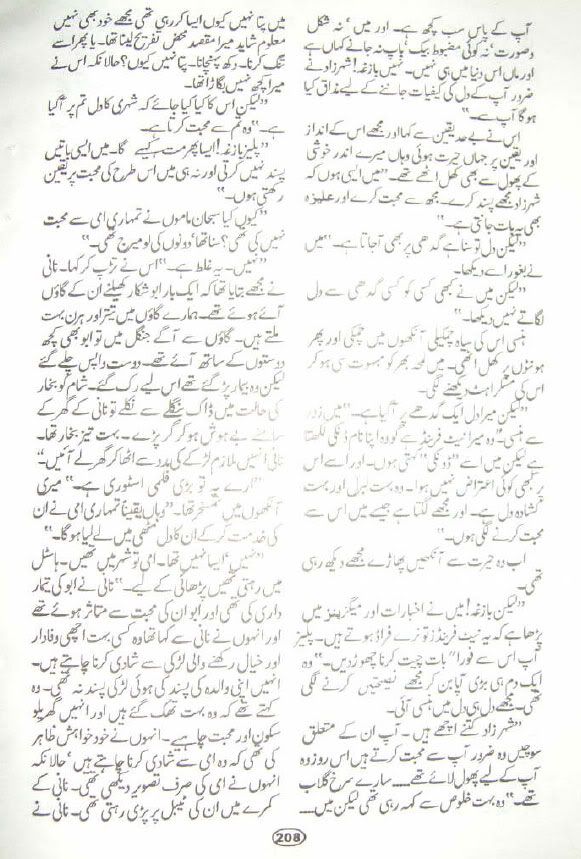 آپ کے پاس سب کچھ ہے۔ اور میں ' نہ شکل
وصورت ' نہ کوئی مضبوط بیک ' باپ نہ جانے کہاں ہے
اور ماں اس دنیا میں ہی نہیں۔ نہیں بازغہ! شہرزاد نے
ضرور آپ کے دل کی کیفیات جاننے کے لیے مذاق کیا
ہوگا آپ سے۔"
اس نے بے حد یقین سے کہا اور مجھے اس کے انداز
اور یقین پر جہاں حیرت ہوئی وہاں میرے اندر خوشی
کے پھول سے بھی کھل اٹھے تھے۔ "میں ایسی ہوں کہ
شہرزاد مجھے پسند کرے۔ مجھ سے محبت کرے اور علیزہ
بھی یہ بات جانتی ہے۔"
"لیکن دل تو سنا ہے گدھی پر بھی آجاتا ہے۔" میں
نے بغور اسے دیکھا۔
"لیکن میں نے کبھی کسی کو کسی گدھی سے دل
لگاتے نہیں دیکھا۔"
ہنسی اس کی سیاہ چمکیلی آنکھوں میں چمکی اور پھر
ہونٹوں پر کھل اٹھی۔ میں لمحہ بھر کو مبہوت سی ہو کر
اس کی مسکراہٹ دیکھنے لگی۔
"لیکن میرا دل ایک گدھے پر آگیا ہے۔" میں زور
سے ہنسی۔ "وہ میرا نیٹ فرینڈ ہے گو وہ اپنا نام ڈنکی لکھتا
ہے لیکن میں اسے "ڈونکی" کہتی ہوں۔ اور اسے اس
پر کبھی کوئی اعتراض نہیں ہوا۔ وہ بہت لبرل اور بہت
کشادہ دل ہے۔ اور مجھے لگتا ہے جیسے میں اس سے
محبت کرنے لگی ہوں۔"
اب وہ حیرت سے آنکھیں پھاڑے مجھے دیکھ رہی
تھی۔
"لیکن بازغہ! میں نے اخبارات اور میگزینز میں
پڑھا ہے کہ یہ نیٹ فرینڈز تو نرے فراڈ ہوتے ہیں۔ پلیز
آپ اس سے فوراً" بات چیت کرنا چھوڑ دیں۔" وہ
ایک دم ہی بڑی آپا بن کر مجھے نصیحتیں کرنے لگی
تھی۔ مجھے دل ہی دل میں ہنسی آئی۔
"شہرزاد کتنے اچھے ہیں۔ آپ ان کے متعلق
سوچیں وہ ضرور آپ سے محبت کرتے ہیں اس روز وہ
آپ کے لیے پھول لائے تھے۔۔۔ سارے سرخ گلاب
تھے۔" وہ بہت خلوص سے کہہ رہی تھی لیکن میں۔۔۔۔
میں پتا نہیں کیوں ایسا کر رہی تھی مجھے خود بھی نہیں
معلوم شاید میرا مقصد محض تفریح لینا تھا۔ یا پھر اسے
تنگ کرنا۔ دکھ پہنچانا۔ پتا نہیں کیوں؟ حالانکہ اس نے
میرا کچھ نہیں بگاڑا تھا۔
"لیکن اس کا کیا کیا جائے کہ شہری کا دل تم پر آگیا
ہے۔" وہ تم سے محبت کرتا ہے۔
"پلیز بازغہ! ایسا پھر مت کہیے گا۔ میں ایسی باتیں
پسند نہیں کرتی اور نہ ہی میں اس طرح کی محبت پر یقین
رکھتی ہوں۔"
"کیوں کیا سبحان ماموں نے تمہاری امی سے محبت
نہیں کی تھی؟ سنا تھا' دونوں کی لو میرج تھی۔"
"نہیں۔ یہ غلط ہے۔" اس نے تڑپ کر کہا۔ نانی
نے مجھے بتایا تھا کہ ایک بار ابو شکار کھیلنے ان کے گاؤں
آئے ہوئے تھے۔ ہمارے گاؤں میں تیتر اور ہرن بہت
ملتے ہیں۔ گاؤں سے آگے جنگل میں تو ابو بھی کچھ
دوستوں کے ساتھ آئے تھے۔ دوست واپس چلے گئے
لیکن وہ بیمار پڑ گئے تھے اس لیے رک گئے۔ شام کو بخار
کی حالت میں ڈاک بنگلے سے نکلے تو نانی کے گھر کے
سامنے بے ہوش ہو کر گر پڑے۔ بہت تیز بخار تھا۔
نانی انہیں ملازم لڑکے کی مدد سے اٹھا کر گھر لے آئیں۔"
"ارے یہ تو بڑی فلمی اسٹوری ہے۔" میری
آنکھوں میں تمسخر تھا۔ "وہاں یقیناً تمہاری امی نے ان
کی خدمت کر کے ان کا دل مٹھی میں لے لیا ہوگا۔"
"نہیں ' ایسا نہیں تھا۔ امی تو شہر میں تھیں۔ ہاسٹل
میں رہتی تھیں پڑھائی کے لیے۔" نانی نے ابو کی تیمار
داری کی تھی اور ابو ان کی محبت سے متاثر ہوئے تھے
اور انہوں نے نانی سے کہا تھا وہ کسی بہت اچھی وفادار
اور خیال رکھنے والی لڑکی سے شادی کرنا چاہتے ہیں۔
انہیں اپنی والدہ کی پسند کی ہوئی لڑکی پسند نہ تھی۔ وہ
کہتے تھے کہ وہ بہت تھک گئے ہیں اور انہیں گھریلو
سکون اور محبت چاہیے۔ انہوں نے خود خواہش ظاہر
کی تھی کہ وہ امی سے شادی کرنا چاہتے ہیں ' حالانکہ
انہوں نے امی کی صرف تصویر دیکھی تھی۔ نانی کے
کمرے میں ان کی ٹیبل پر پڑی رہتی تھی۔ نانی نے
208